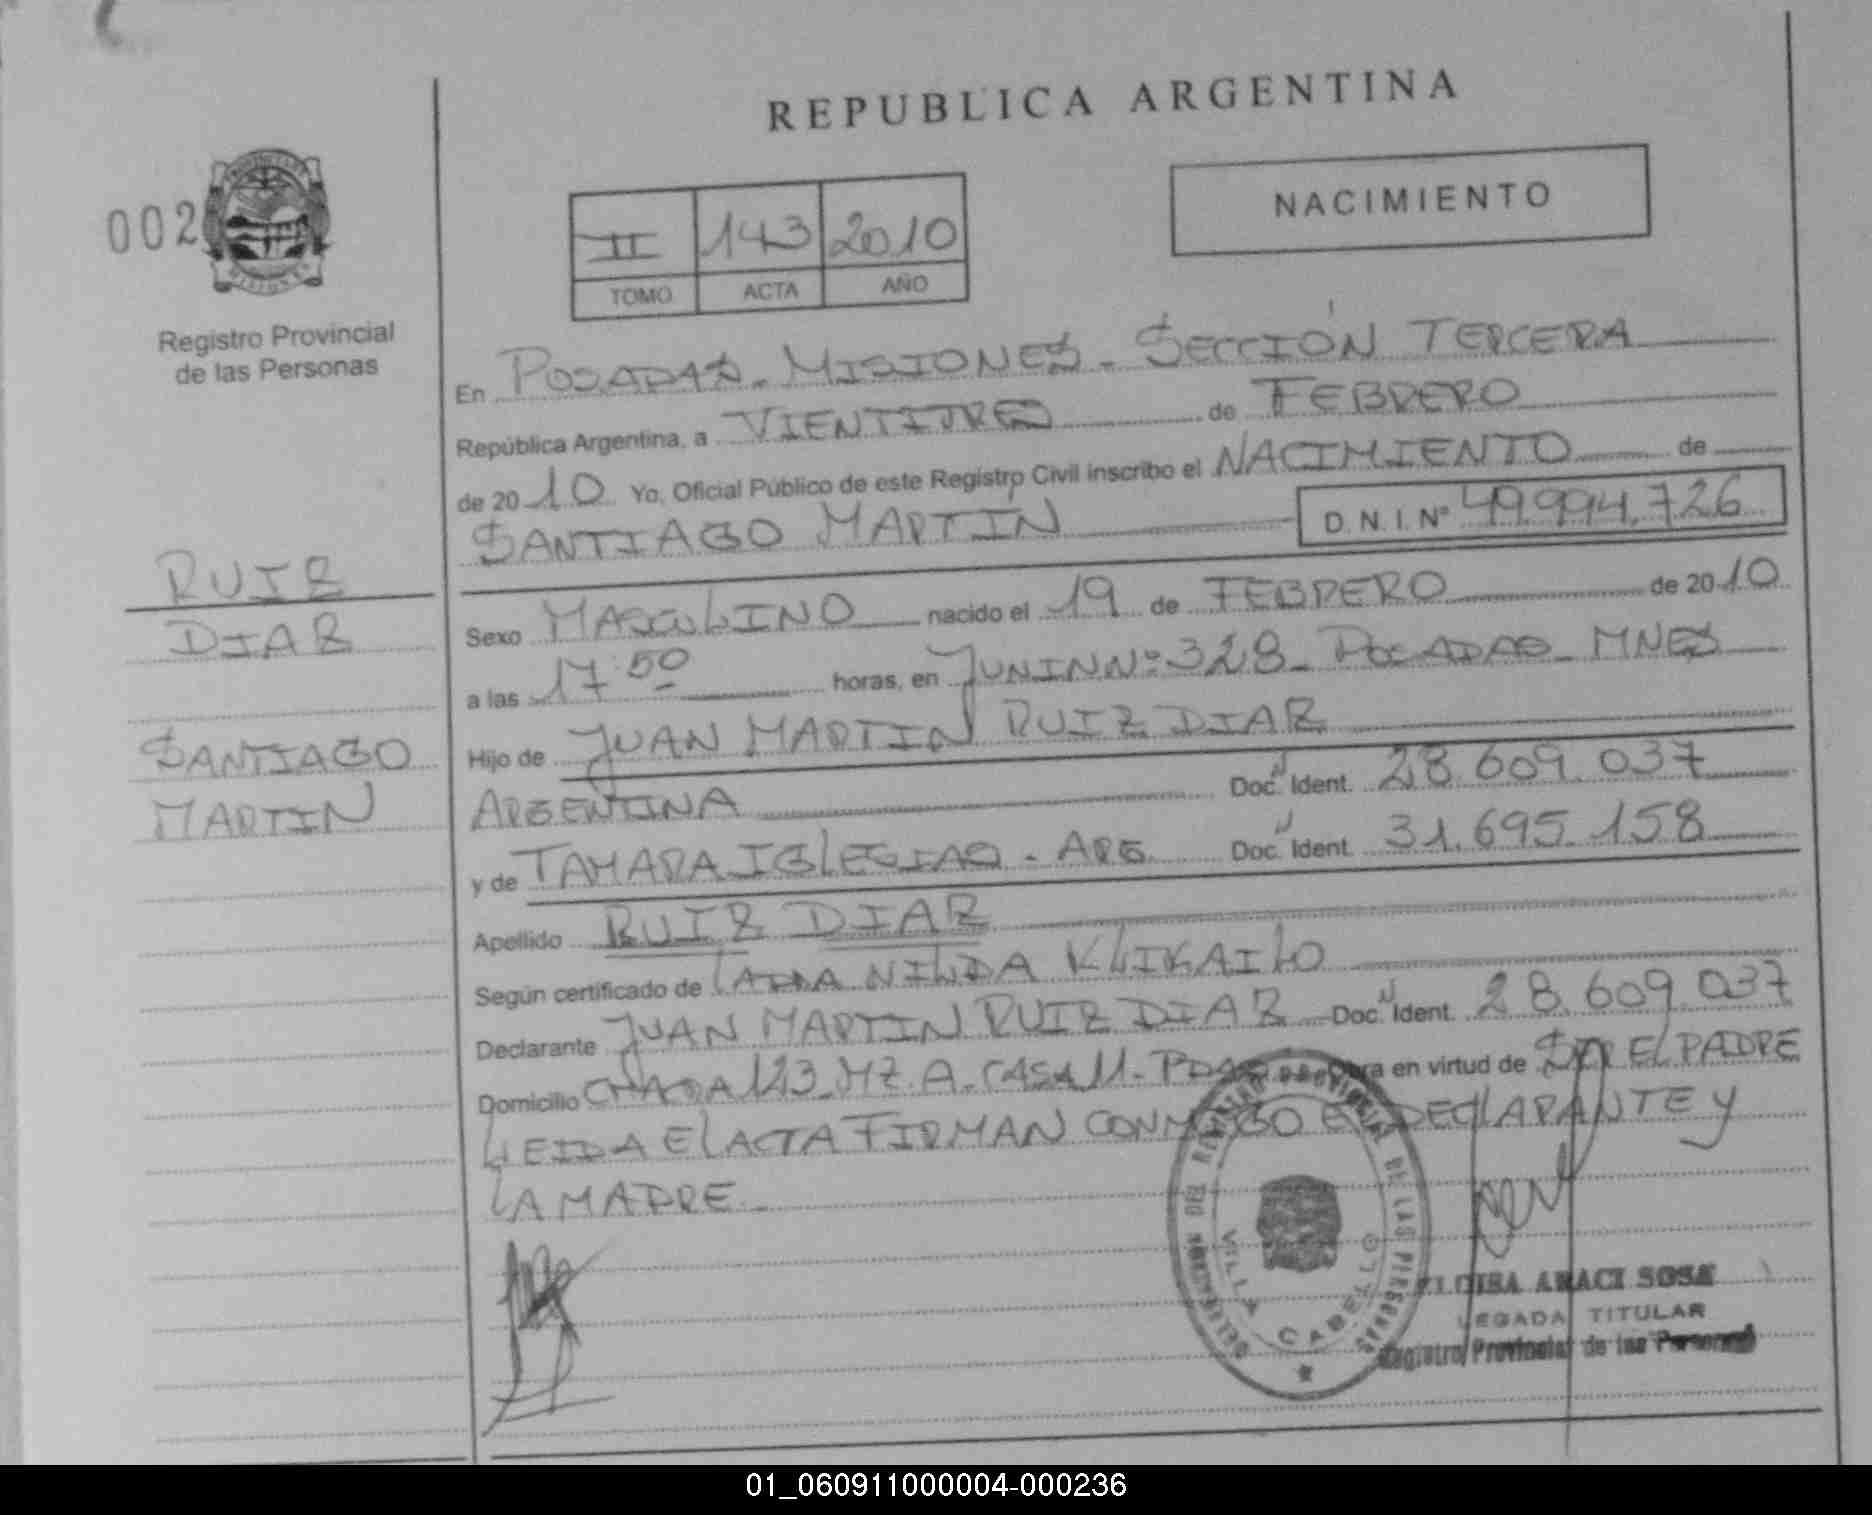 REPUBLICA ARGENTINA
002
II 143 2010
TOMO ACTA AÑO
NACIMIENTO
Registro Provincial
de las Personas
En POSADAS - MISIONES - SECCIÓN TERCERA
República Argentina, a VIENTITRES de FEBRERO
de 2010 Yo, Oficial Público de este Registro Civil inscribo el NACIMIENTO de
SANTIAGO MARTIN D.N.I. Nº 49.994.726
RUIZ
DIAZ
SANTIAGO
MARTIN
Sexo MASCULINO nacido el 19 de FEBRERO de 2010
a las 17:50 horas, en JUNIN Nº: 328 - POSADAS - MNES
Hijo de JUAN MARTIN RUIZ DIAZ
ARGENTINA Doc. Ident. 28.609.037
y de TAMARA IGLESIAS - ARG Doc. Ident. 31.695.158
Apellido RUIZ DIAZ
Según certificado de NILDA KLIKAILO
Declarante JUAN MARTIN RUIZ DIAZ Doc. Ident. 28.609.037
Domicilio CHACRA 123 MZ. A. CASA 11 - PDAS Obra en virtud de SER EL PADRE
LEIDA EL ACTA FIRMAN CONMIGO EL DECLARANTE Y
LA MADRE -
REGISTRO PROVINCIAL DE LAS PERSONAS
VILLA CABELLO
ARACI SOSA
LEGADA TITULAR
Registro Provincial de las Personas
01_060911000004-000236